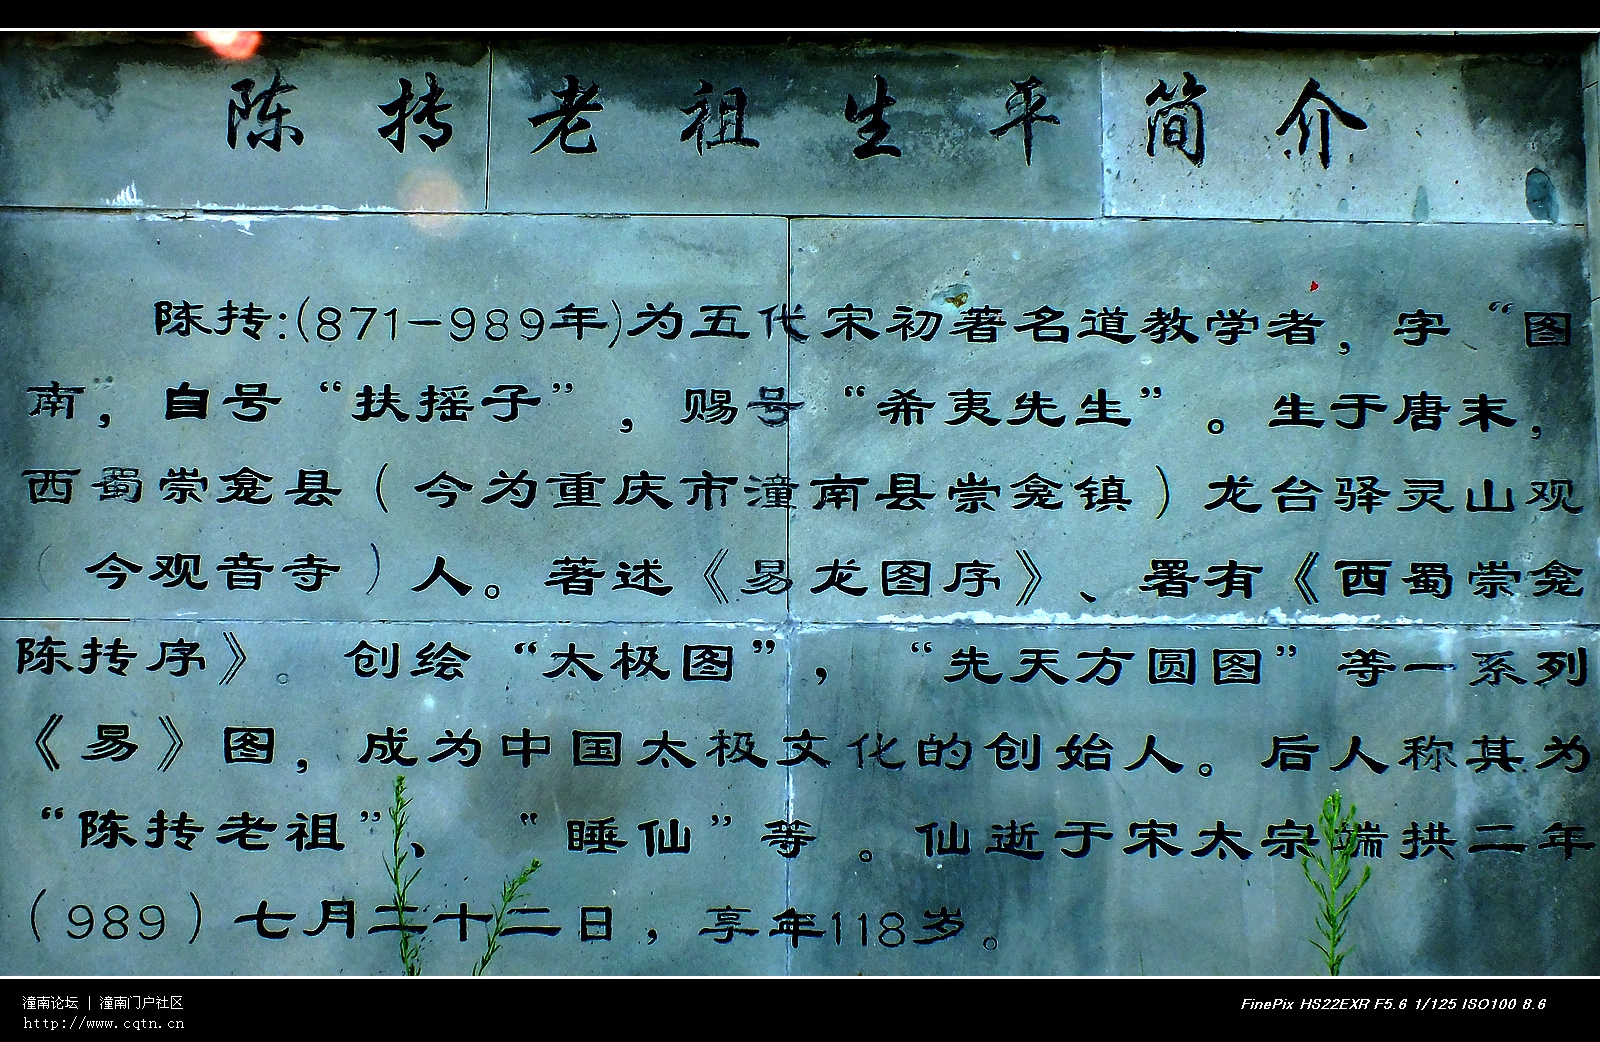 陈抟老祖生平简介
陈抟:(871-989年)为五代宋初著名道教学者，字“图
南，自号“扶摇子”，赐号“希夷先生”。生于唐末，
西蜀崇龛县（今为重庆市潼南县崇龛镇）龙台驿灵山观
（今观音寺）人。著述《易龙图序》、署有《西蜀崇龛
陈抟序》。创绘“太极图”，“先天方圆图”等一系列
《易》图，成为中国太极文化的创始人。后人称其为
“陈抟老祖”、“睡仙”等。仙逝于宋太宗端拱二年
（989）七月二十二日，享年118岁。
潼南论坛 | 潼南门户社区
http://www.cqtn.cn
FinePix HS22EXR F5.6 1/125 ISO100 8.6